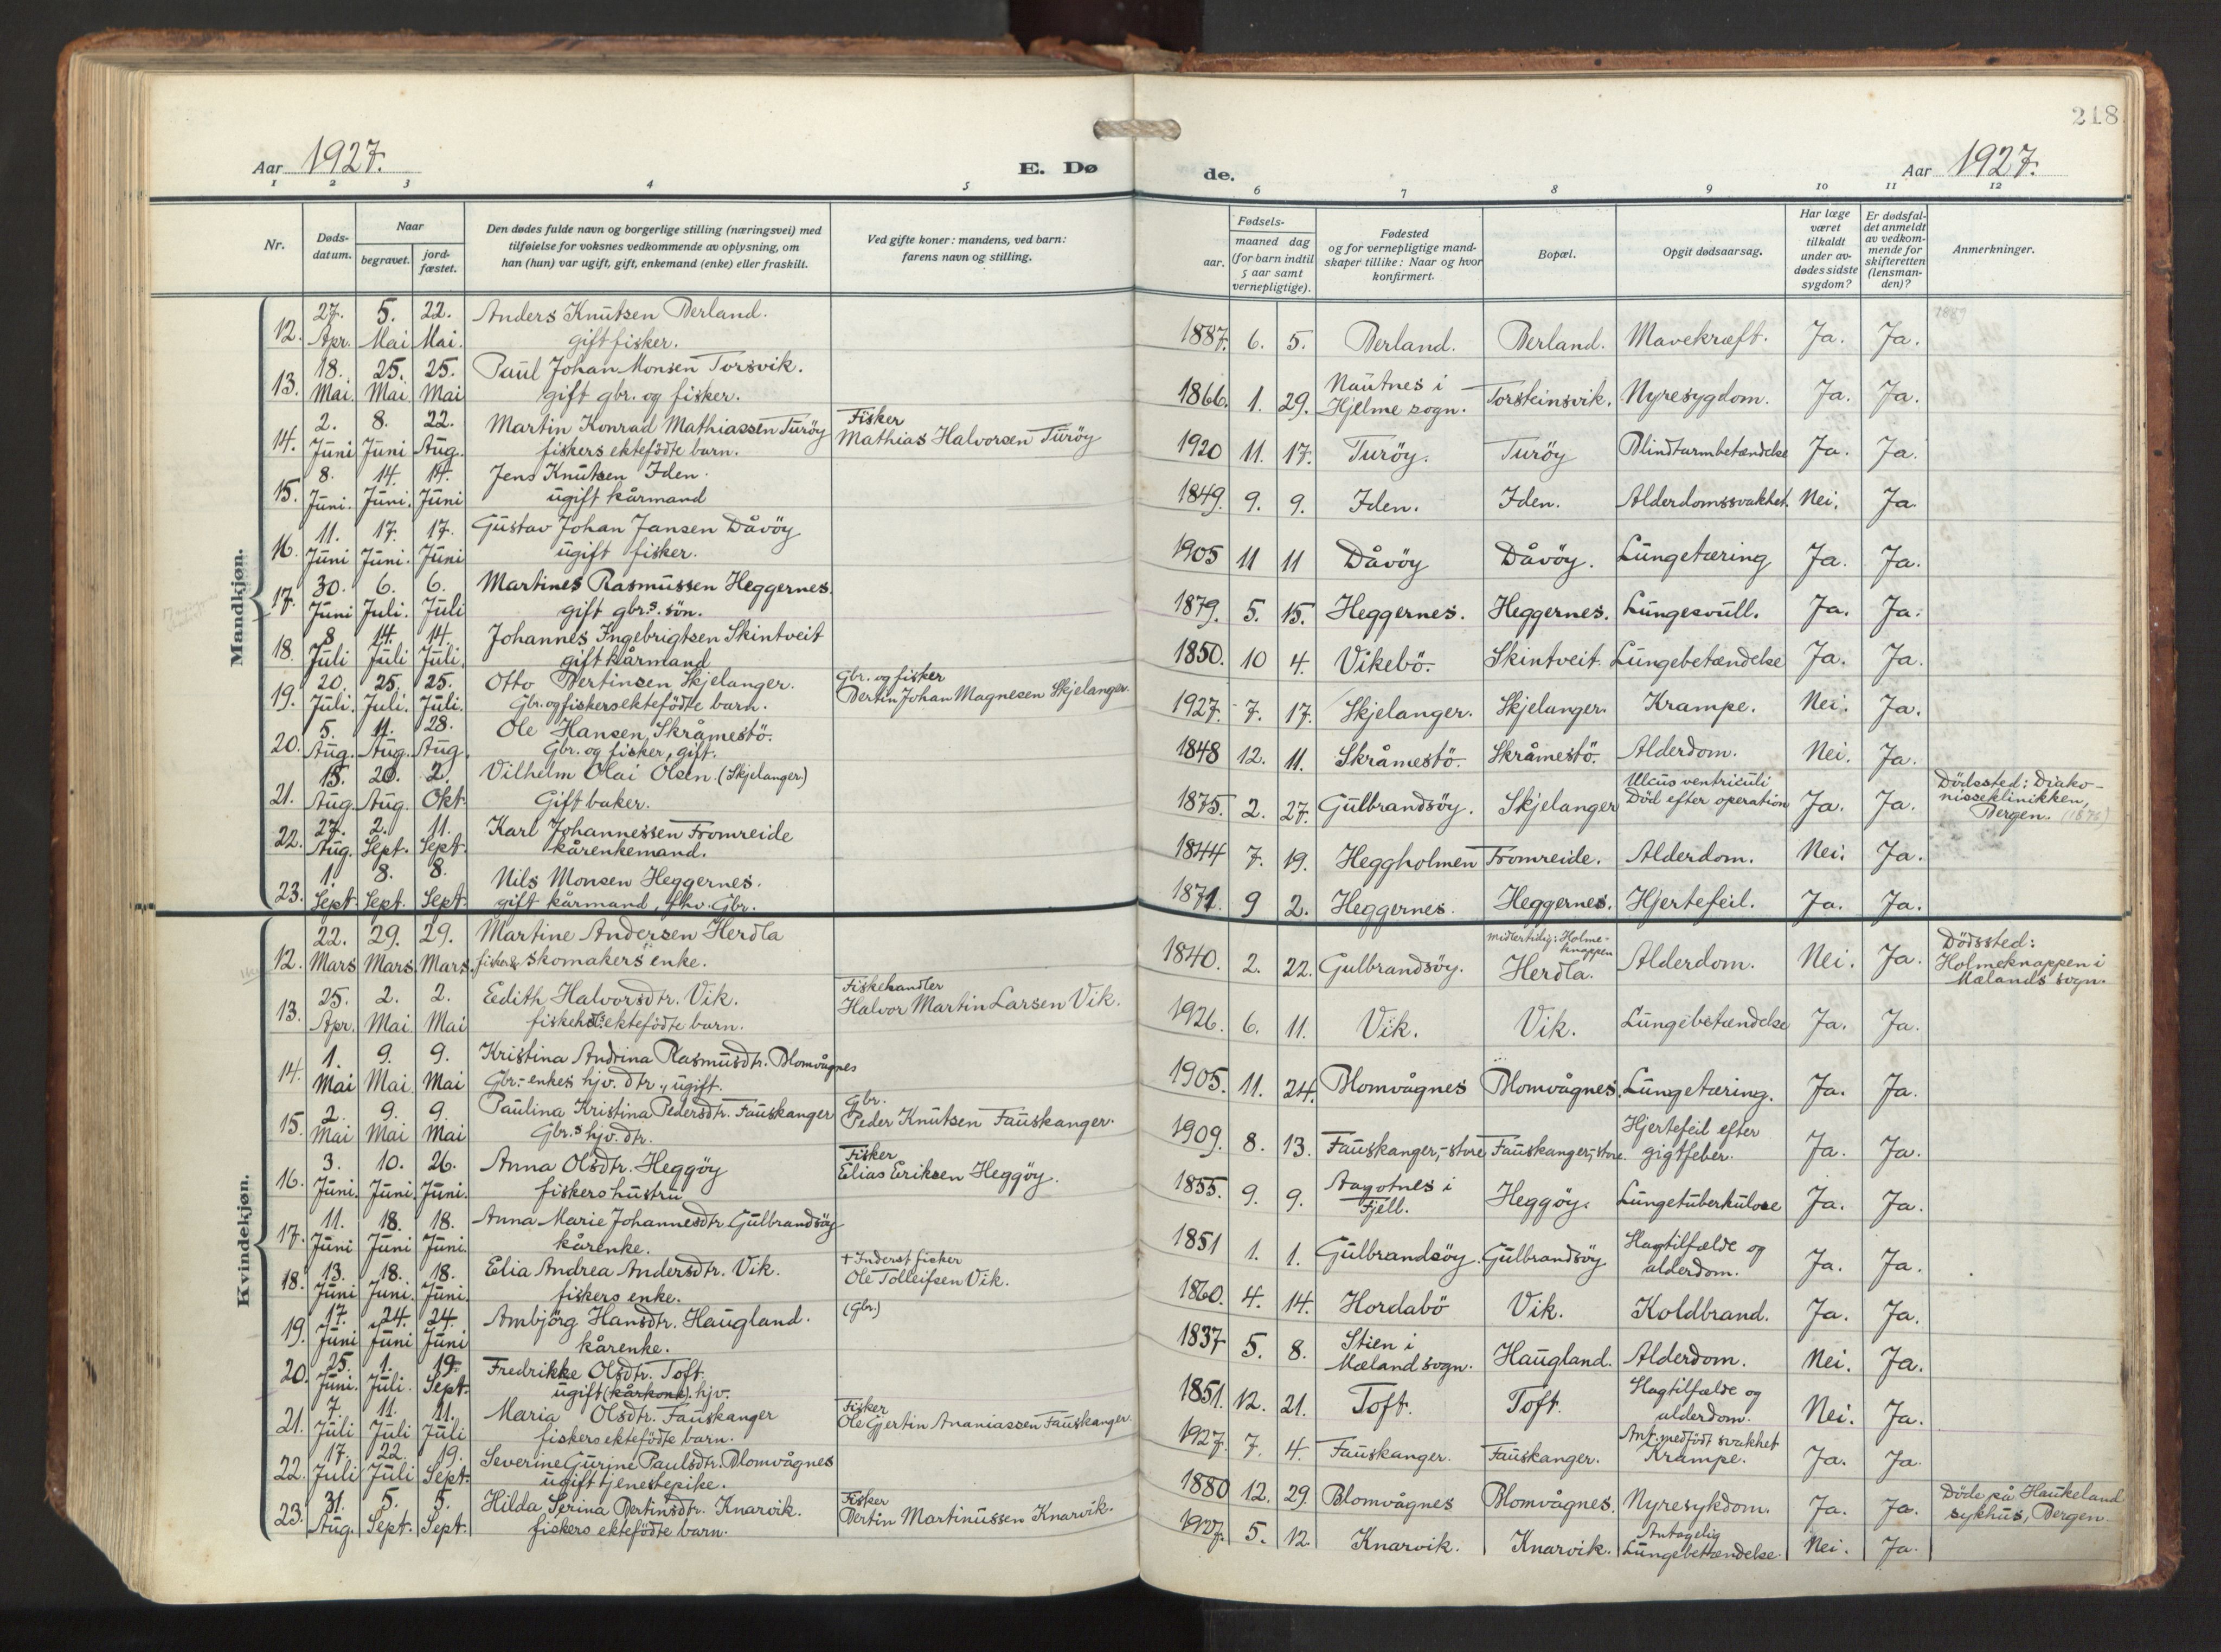 218
Aar 1927.
E. Dø
de.
Aar 1927.
1 2 3 4 5 6 7 8 9 10 11 12
Nr.
Døds-
datum.
Naar
begravet.
jord-
fæstet.
Den dødes fulde navn og borgerlige stilling (næringsvei) med
tilføielse for voksnes vedkommende av oplysning, om
han (hun) var ugift, gift, enkemand (enke) eller fraskilt.
Ved gifte koner: mandens, ved barn:
farens navn og stilling.
Fødsels-
aar.
maaned dag
(for barn indtil
5 aar samt
vernepligtige).
Fødested
og for vernepligtige mand-
skaper tillike: Naar og hvor
konfirmert.
Bopæl.
Opgit dødsaarsag.
Har læge
været
tilkaldt
under av-
dødes sidste
sygdom?
Er dødsfal-
det anmeldt
av vedkom-
mende for
skifteretten
(lensman-
den)?
Anmerkninger.
Mandkjøn.
12. 27. Apr. 5. Mai 22. Mai. Anders Knutsen Berland.
gift fisker.
1887. 6. 5. Berland. Berland. Mavekræft. Ja. Ja.
13. 18. Mai. 25. Mai. 25. Mai Paul Johan Monsen Torsvik.
gift gbr. og fisker.
1866. 1. 29. Nautnes i
Hjelme sogn. Torsteinsvik. Nyresygdom. Ja. Ja.
14. 2. Juni 8. Juni 22. Aug. Martin Konrad Mathiassen Turöy
fiskers ektefödte barn.
Fisker
Mathias Halvorsen Turöy
1920 11. 17. Turöy. Turöy Blindtarmbetændelse Ja. Ja.
15. 8. Juni. 14. Juni. 14. Juni Jens Knutsen Iden.
ugift kårmand
1849. 9. 9. Iden. Iden. Alderdomssvakhet. Nei. Ja.
16. 11. Juni 17. Juni. 17. Juni Gustav Johan Jansen Dåvöy
ugift fisker.
1905 11 11 Dåvöy Dåvöy. Lungetæring Ja. Ja.
17. 30. Juni 6. Juli. 6. Juli Martines Rasmussen Heggernes.
gift gbr.s. sön.
1879. 5. 15. Heggernes. Heggernes. Lungesvull. Ja. Ja.
18. 8 Juli 14. Juli 14. Juli. Johannes Ingebrigtsen Skintveit
gift kårmand
1850. 10 4. Vikebö. Skintveit. Lungebetændelse Ja. Ja.
19. 20. Juli. 25. Juli. 25. Juli. Otto Bertinsen Skjelanger.
Gbr. og fiskers ektefödte barn.
Gbr. og fisker
Bertin Johan Magnesen Skjelanger.
1927. 7. 17. Skjelanger. Skjelanger. Krampe. Nei. Ja.
20. 5. Aug. 11. Aug. 28. Aug. Ole Hansen Skråmestö.
Gbr. og fisker, gift.
1848 12. 11. Skråmestö. Skråmestö. Alderdom. Nei. Ja.
21. 15. Aug. 20. Aug. 2. Okt. Vilhelm Olai Olsen. (Skjelanger)
Gift baker.
1875. 2. 27. Gulbrandsöy. Skjelanger Ulcus ventriculi
Död efter operation Ja. Ja. Dödssted: Diako-
nisseklinikken,
Bergen. (1876)
22. 27. Aug. 2. Sept. 11. Sept. Karl Johannessen Fromreide
kårenkemand.
1844 7. 19. Heggholmen Fromreide. Alderdom. Nei. Ja.
23. 1. Sept. 8. Sept. 8. Sept. Nils Monsen Heggernes.
gift kårmand, fhv. Gbr.
1871. 9 2. Heggernes. Heggernes. Hjertefeil. Ja. Ja.
Kvindekjøn.
12. 22. Mars 29. Mars 29. Mars. Martine Andersen Herdla
fisker & skomakers enke.
1840. 2. 22. Gulbrandsöy. midlertidig: Holme-
knappen
Herdla. Alderdom. Nei. Ja. Dödssted:
Holmeknappen i
Mælands sogn.
13. 25. Apr. 2. Mai 2. Mai Edith Halvorsdtr. Vik.
fiskehdl.s ektefödte barn.
Fiskehandler
Halvor Martin Larsen Vik.
1926. 6. 11. Vik. Vik. Lungebetændelse Ja. Ja.
14. 1. Mai 9. Mai 9. Mai Kristina Andrina Rasmusdtr. Blomvågnes
Gbr.-enkes hjv. dtr., ugift.
1905. 11. 24. Blomvågnes Blomvågnes. Lungetæring. Ja. Ja.
15. 2. Mai 9. Mai 9. Mai Paulina Kristina Pedersdtr. Fauskanger
Gbr.s hjv. dtr.
Gbr.
Peder Knutsen Fauskanger.
1909. 8. 13. Fauskanger,-store Fauskanger,-store. Hjertefeil efter
gigtfeber. Ja. Ja.
16. 3. Juni. 10. Juni. 26. Juni. Anna Olsdtr. Heggöy
fiskers hustru
Fisker
Elias Eriksen Heggöy.
1855. 9. 9. Aagotnes i
Fjell. Heggöy. Lungetuberkulose Ja. Ja.
17. 11. Juni 18. Juni 18. Juni. Anna Marie Johannesdtr. Gulbrandsöy
kårenke.
1851 1. 1. Gulbrandsöy. Gulbrandsöy Slagtilfælde og
alderdom. Ja. Ja.
18. 13. Juni 18. Juni. 18. Juni. Elia Andrea Andersdtr. Vik.
fiskers enke.
+ Inderst fisker
Ole Tolleifsen Vik.
1860. 4. 14. Hordabö Vik. Koldbrand. Ja. Ja.
19. 17. Juni 24. Juni 24. Juni Ambjörg Hansdtr. Haugland.
kårenke.
(Gbr.)
1837 5. 8. Stien i
Mæland sogn. Haugland. Alderdom. Nei. Ja.
20. 25. Juni. 1. Juli. 19. Sept. Fredrikke Olsdtr. Toft.
ugift (kårkone). hjv.
1851. 12. 21. Toft. Toft. Slagtilfælde og
alderdom. Nei. Ja.
21. 7. Juli 11. Juli 11. Juli Maria Olsdtr. Fauskanger
fiskers ektefödte barn.
Fisker
Ole Gjertin Ananiassen Fauskanger.
1927. 7. 4. Fauskanger. Fauskanger. Ant. medfödt svakhet
Krampe. Ja. Ja.
22. 17. Juli 22. Juli 19. Sept. Severine Gurine Paulsdtr. Blomvågnes
ugift tjenestepike.
1880 12. 29. Blomvågnes Blomvågnes. Nyresykdom. Ja. Ja. Döde på Haukeland
sykhus, Bergen.
23. 31. Aug. 5. Sept. 5. Sept. Hilda Serina Bertinsdtr. Knarvik.
fiskers ektefödte barn.
Fisker
Bertin Martinussen Knarvik.
1927. 5. 12. Knarvik. Knarvik. Antagelig
Lungebetændelse. Nei. Ja.